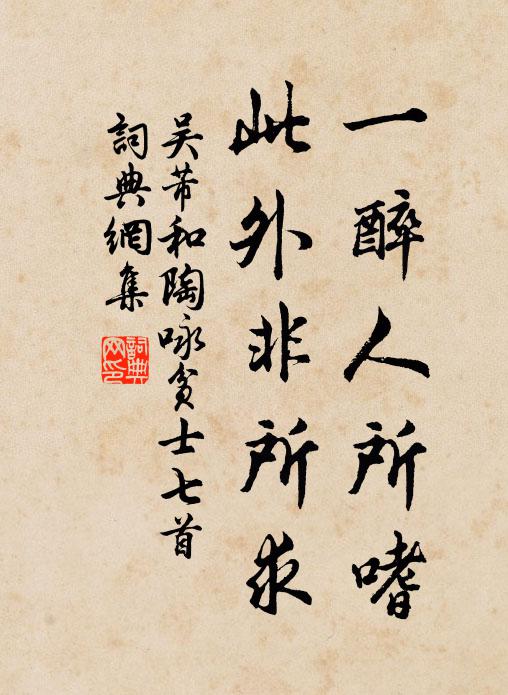 一醉人所嗜
此外非所求
吴芾和陶咏贫士七首
詞典網集
詞典网印